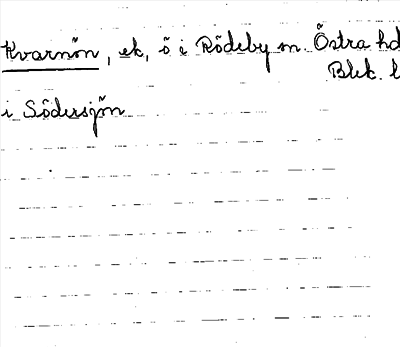 Kvarnön, ek, ö i Rödeby sn. Östra hd
Blek. l
i Södersjön